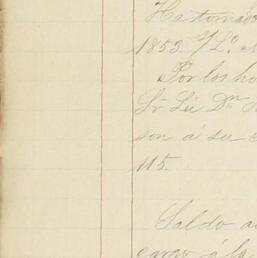 Ha tomado
1853 /Lo.
Por los ho
Sr Lic Dn
son á su c
115.
Saldo a
cargo á la